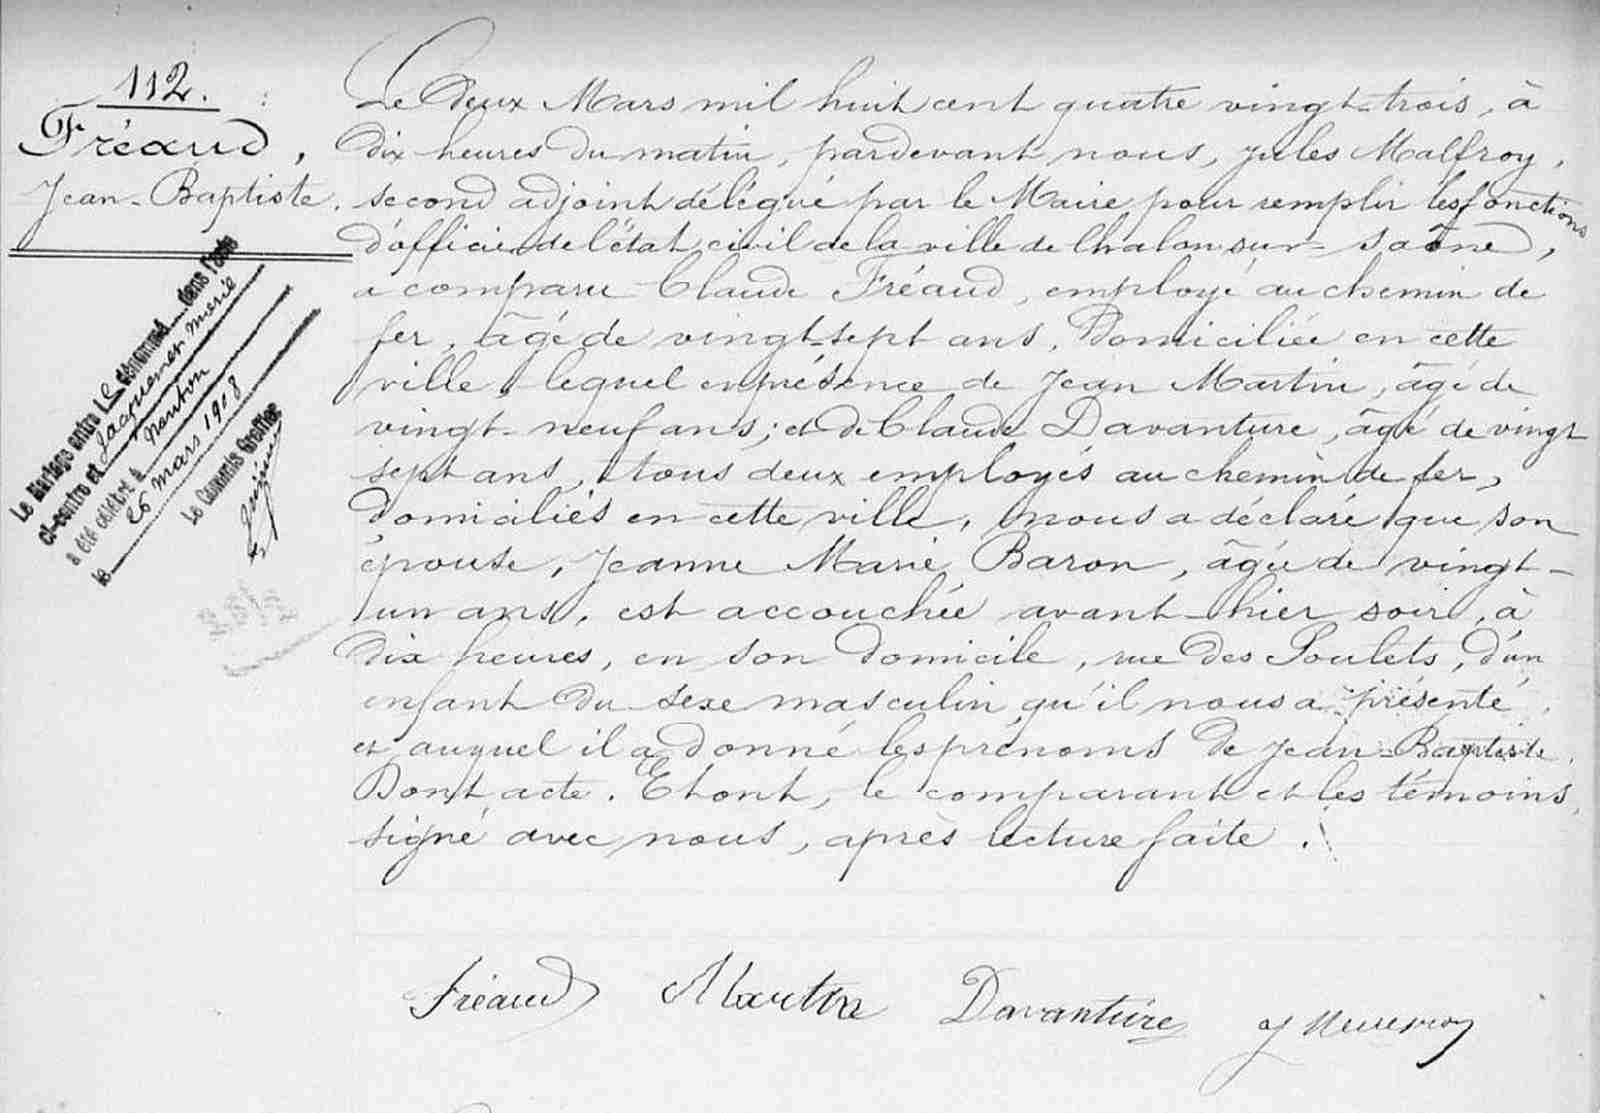 112.
Fréaud,
Jean-Baptiste.
Le mariage entre le dénommé dans l'acte
ci-contre et Jacquemet Marie
a été célébré à Nanton
le 26 mars 1908
Le Commis Greffier
Le Deux Mars mil huit cent quatre vingt-trois, à
dix heures du matin, pardevant nous, Jules Malfroy,
second adjoint délégué par le Maire pour remplir les fonctions
d'officier de l'état civil de la ville de Chalon-sur-Saône,
a comparu Claude Fréaud, employé au chemin de
fer, âgé de vingt-sept ans, domiciliée en cette
ville, lequel en présence de Jean Martin, âgé de
vingt-neuf ans; et de Claude Davanture, âgé de vingt
sept ans, tous deux employés au chemin de fer,
domiciliés en cette ville, nous a déclaré que son
épouse, Jeanne Marie Baron, âgée de vingt-
un ans, est accouchée avant-hier soir, à
dix heures, en son domicile, rue des Poulets, d'un
enfant du sexe masculin qu'il nous a présenté
et auquel il a donné les prénoms de Jean-Baptiste.
Dont acte. Et ont, le comparant et les témoins,
signé avec nous, après lecture faite.
Fréaud Martin Davanture